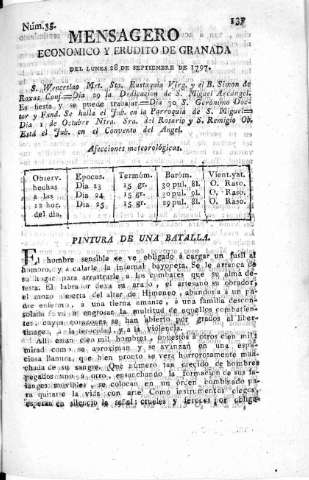 Núm. 35. 137
MENSAGERO
ECONOMICO Y ERUDITO DE GRANADA
DEL LUNES 28 DE SEPTIEMBRE DE 1797.
S. Wenceslao Mrt. Sta. Eustoquia Virg. y el B. Simon de
Roxas Conf.=Dia 29 la Dedicacion de S. Miguel Arcángel.
Es fiesta y se puede trabajar.=Dia 30 S. Gerónimo Doc-
tor y Fund. Se halla el Jub. en la Parroquia de S. Miguel=
Dia 1 de Octubre Ntra. Sra. del Rosario y S. Remigio Ob.
Está el Jub. en el Convento del Angel.
Afecciones meteorológicas.
Observ. Epocas. Termóm. Baróm. Vient. yat.
hechas Dia 23 15 gr. 30 pul. 8l. O. Raso.
a las Dia 24 15 gr. 30 pul. 9l. O. Raso.
12 hor. Dia 25 15 gr. 29 pul. 8l. O. Raso.
del dia.
PINTURA DE UNA BATALLA.
El hombre sensible se ve obligado á cargar un fusil al
hombro, y á calarle la infernal bayoneta. Se le arranca de
su hogar para arrastrarle á los combates que su alma de-
testa. El labrador dexa su arado, el artesano su obrador,
el mozo abierta del altar de Himeneo, abandona á un pa-
dre enfermo, á una tierna amante, á una familia descon-
solada para ir engrosar la multitud de aquellos combatien-
tes, cuyos corazones se han abierto por grados al liber-
tinage, á la ferocidad, y á la violencia.
Allí estan cien mil hombres, opuestos á otros cien mil:
mirad como se aproximan y se avanzan en una espa-
ciosa llanura, que bien pronto se verá horrorosamente man-
chada de su sangre. Que número tan crecido de hombres
pegados unos á otro, ensanchando la formacion de sus fa-
langes movibles, se colocan en un órden combinado pa-
ra quitarse la vida con arte! Como instrumentos ciegos,
esperan en silencio la señal: crueles y feroces por obliga-